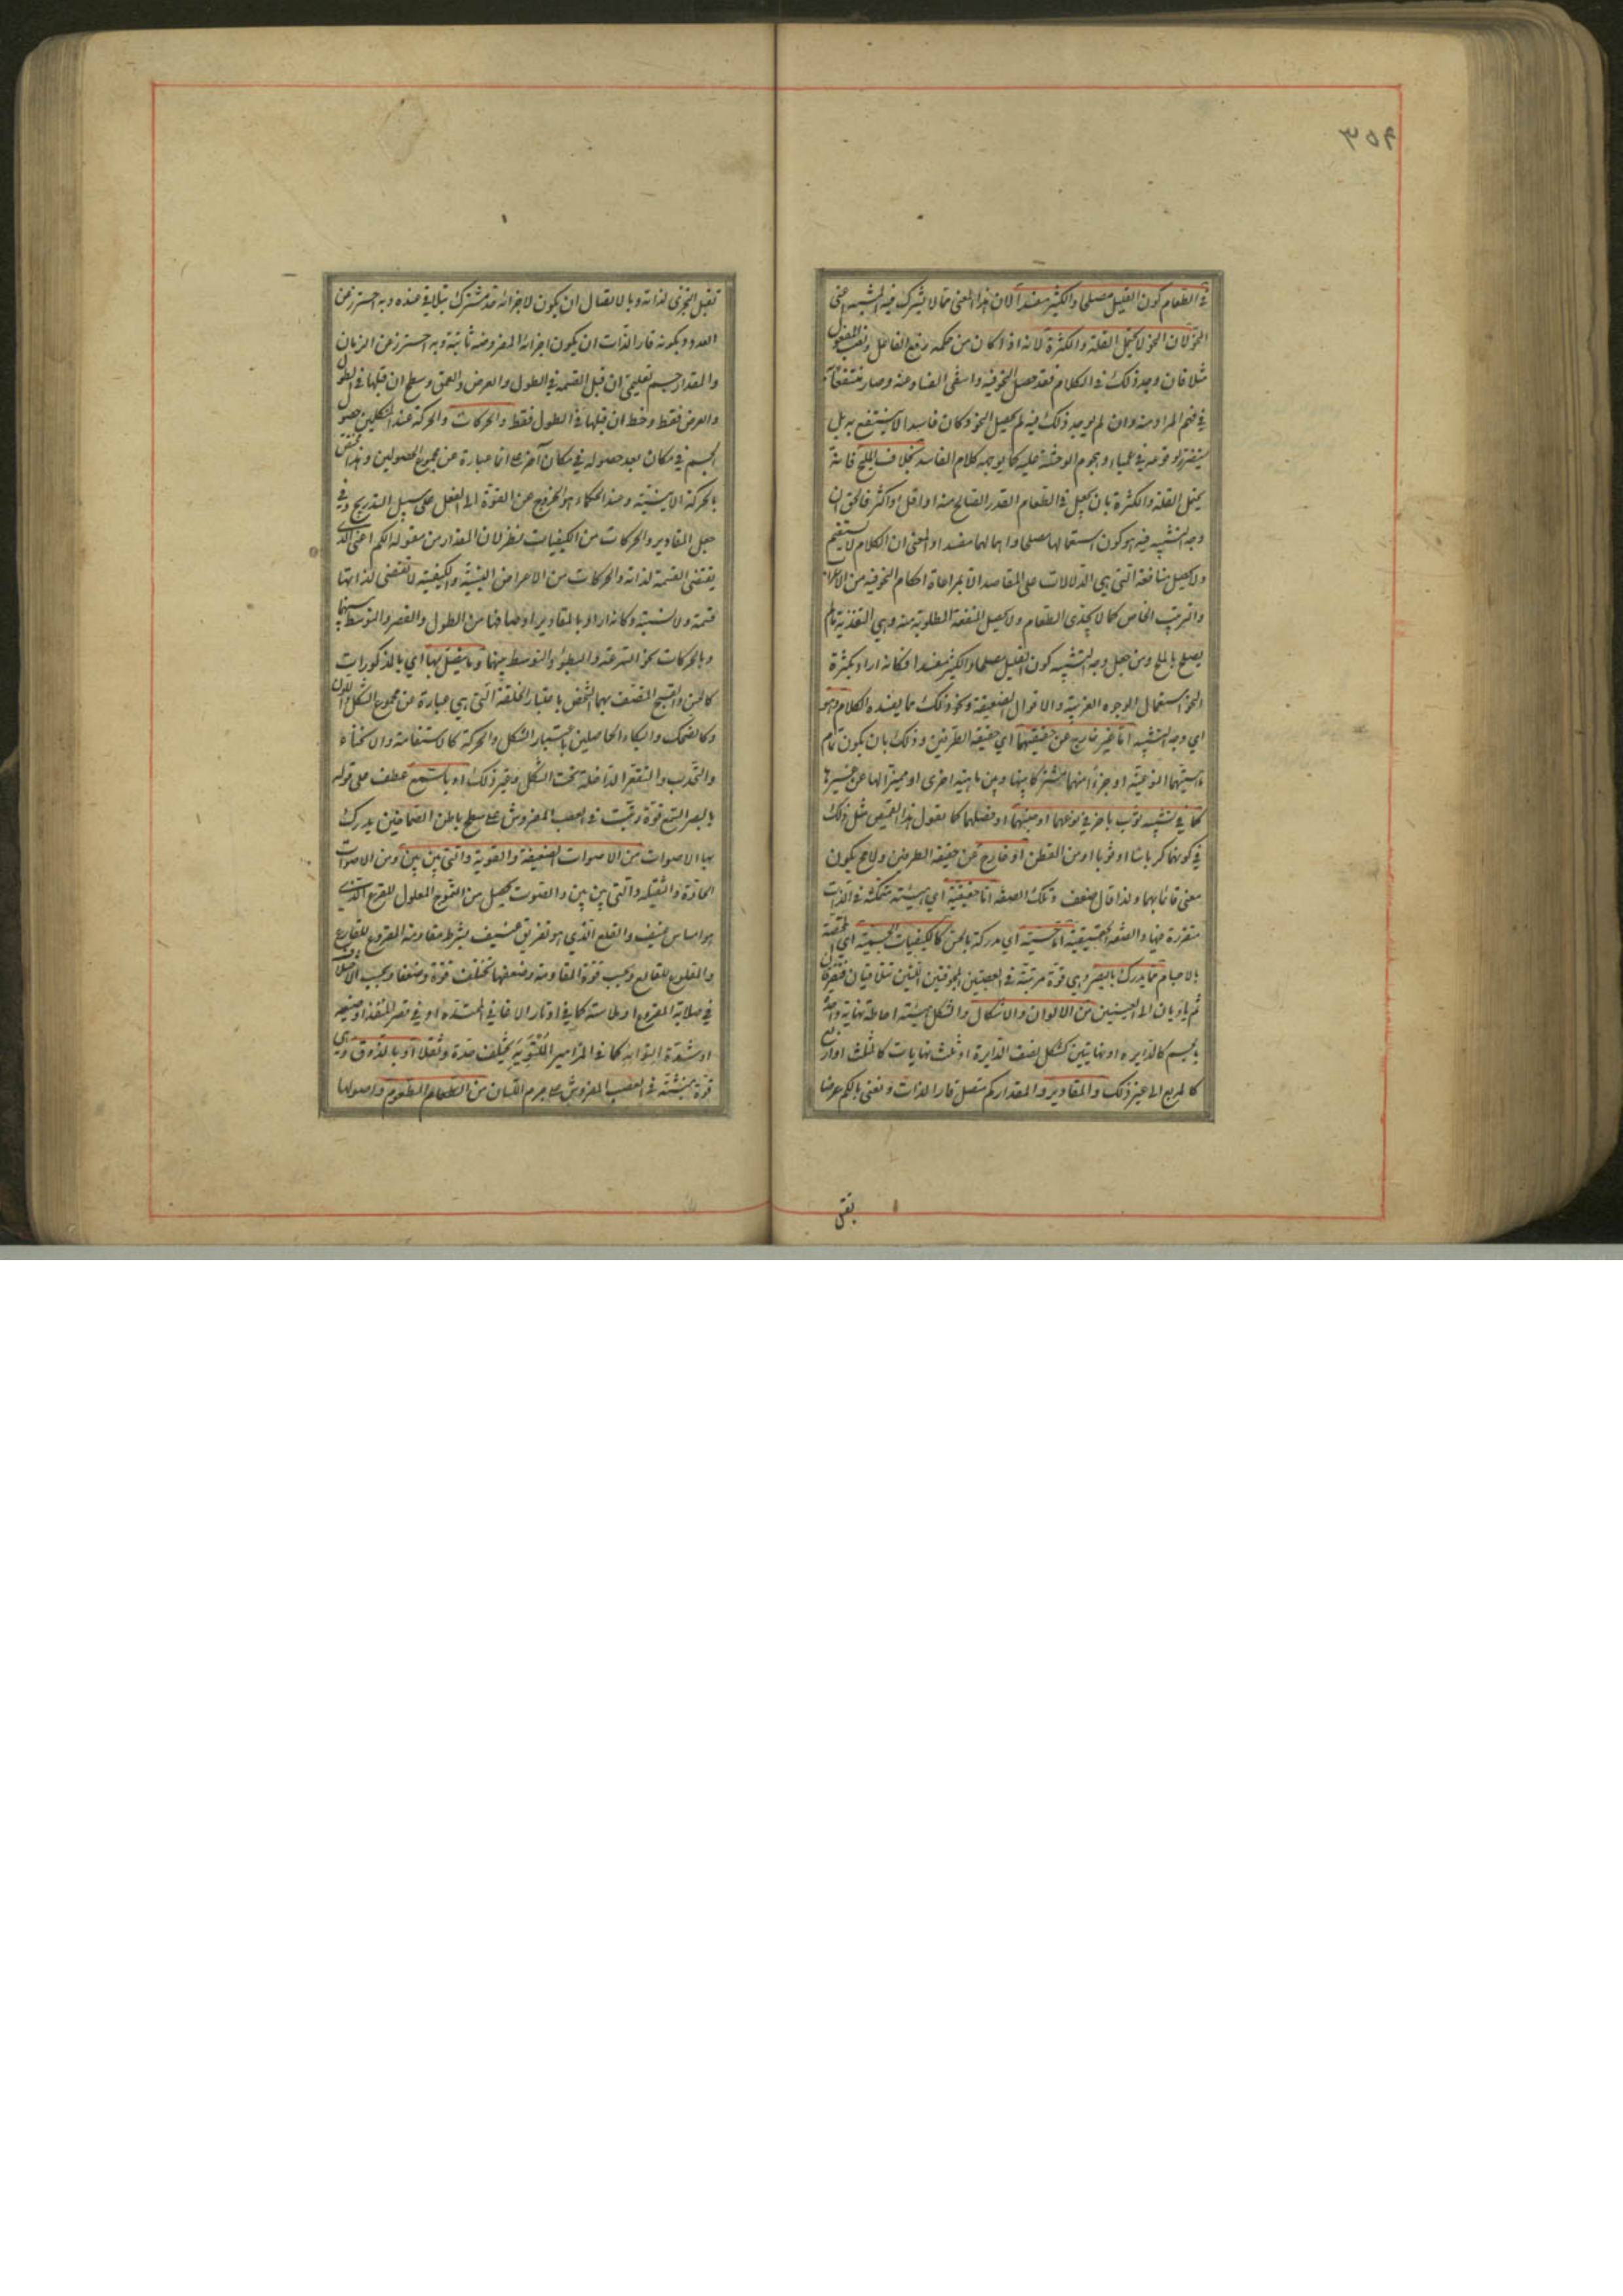 ٣٥٩
في الطعام كون القليل مصلحا والكثير مفسدا لان هذا المعنى مما لا يشترك فيه المشبه اعنى
النحو لان النحو لا يحتمل القلة والكثرة لانه اذا كان من حكمه رفع الفاعل ونصب المفعول
مثلا فان وجد ذلك في الكلام فقد حصل النحو فيه وانتفى الفساد عنه وصار منتفعا به
في فهم المراد منه وان لم يوجد ذلك فيه لم يحصل النحو وكان فاسدا لا ينتفع به بل
يستضر لوقوعه في عمياء وهجوم الوحشة عليه كما يوجبه كلام الفاسد بخلاف الملح فانه
يحتمل القلة والكثرة بان يجعل في الطعام القدر الصالح منه او اقل او اكثر فالحق ان
وجه التشبيه فيه هو كون استعمالهما مصلحا واهمالهما مفسدا والمعنى ان الكلام لا يستقيم
ولا يحصل منافعه التي هي الدلالات على المقاصد الا بمراعاة احكام النحو فيه من الاعراب
والترتيب الخاص كما لا يجدى الطعام ولا يحصل المنفعة المطلوبة منه وهي التغذية ما لم
يصلح بالملح ومن جعل وجه التشبيه كون القليل مصلحا والكثير مفسدا فكانه اراد بكثرة
النحو استعمال الوجوه الغريبة والاقوال الضعيفة ونحو ذلك مما يفسد الكلام وهو
اي وجه التشبيه اما غير خارج عن حقيقتهما اي حقيقة الطرفين وذلك بان يكون تمام
ماهيتهما النوعية او جزءا منهما مشتركا بينهما وبين ماهية اخرى او مميزا لها عن غيرها
كما في تشبيه ثوب باخر في نوعهما او جنسهما او فصلهما كما يقول هذا القميص مثل ذلك
في كونهما كرباسا او ثوبا او من القطن او خارج عن حقيقة الطرفين ولا مح يكون
معنى قائما بهما ولذا قال صفة وتلك الصفة اما حقيقية اي هيئة متمكنة في الذات
متقررة فيها والصفة الحقيقية اما حسية اي مدركة بالحس كالكيفيات الجسمية اي المختصة
بالاجسام مما يدرك بالبصر وهي قوة مرتبة في العصبتين المجوفتين اللتين تتلاقيان فتفترقان
ثم يتاديان الى العينين من الالوان والاشكال والشكل هيئة احاطة نهاية واحدة
بالجسم كالدايرة او نهايتين كشكل نصف الدايرة او ثلث نهايات كالمثلث او اربع
كالمربع الى غير ذلك والمقادير والمقدار كم متصل قار الذات ونعنى بالكم عرضا
يقبل
تقبل التجزى لذاته وبالاتصال ان يكون لاجزائه حد مشترك يتلاقى عنده وبه احترز عن
العدد وبكونه قار الذات ان يكون اجزائه المفروضة ثابتة وبه احترز عن الزمان
والمقدار جسم تعليمى ان قبل القسمة في الطول والعرض والعمق وسطح ان قبلها في الطول
والعرض فقط وخط ان قبلها في الطول فقط والحركات والحركة عند المتكلمين حصول
الجسم في مكان بعد حصوله في مكان آخر اعنى انها عبارة عن مجموع الحصولين وهذا مختص
بالحركة الاينية وعند الحكماء هو الخروج من القوة الى الفعل على سبيل التدريج وفي
جعل المقادير والحركات من الكيفيات نظر لان المقدار من مقولة الكم اعنى الذي
يقتضى القسمة لذاته والحركات من الاعراض النسبية والكيفية لا تقتضى لذاتها
قسمة ولا نسبة وكانه اراد بالمقادير اوصافها من الطول والقصر والتوسط بينهما
وبالحركات نحو السرعة والبطؤ والتوسط بينهما وما يتصل بها اي بالمذكورات
كالحسن والقبح المتصف بهما الشخص باعتبار الخلقة التي هي عبارة عن مجموع الشكل واللون
وكالضحك والبكاء الحاصلين باعتبار الشكل والحركة كالاستقامة والانحناء
والتحدب والتقعر الداخلة تحت الشكل وغير ذلك او بالسمع عطف على قوله
بالبصر السمع قوة رتبت في العصب المفروش على سطح باطن الصماخين يدرك
بها الاصوات من الاصوات الضعيفة والقوية والتي بين بين ومن الاصوات
الحادة والثقيلة والتي بين بين والصوت يحصل من التموج المعلول للقرع الذي
هو امساس عنيف والقلع الذي هو تفريق عنيف بشرط مقاومة المقروع للقارع
والمقلوع للقالع وبحسب قوة المقاومة وضعفها تختلف قوة وضعفا وبحسب الاختلاف
في صلابة المقروع او ملاسته كما في اوتار الاغاني الممتدة او في قصر المنفذ او ضيقه
او شدة التوائه كما في المزامير الملتوية يختلف حدة وثقلا او بالذوق وهي
قوة منبثة في العصب المفروش على جرم اللسان من الطعام المطعوم واصولها